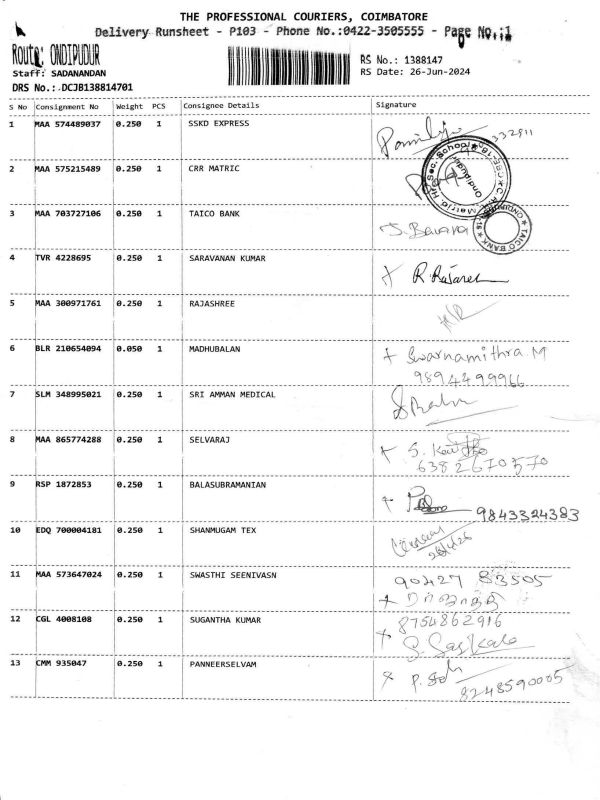 THE PROFESSIONAL COURIERS, COIMBATORE
Delivery Runsheet - P103 - Phone No.:0422-3505555 - Page No.:1
Route: ONDIPUDUR
Staff: SADANANDAN
DRS No.: DCJB138814701
RS No.: 1388147
RS Date: 26-Jun-2024
S No Consignment No Weight PCS Consignee Details Signature
1 MAA 574489037 0.250 1 SSKD EXPRESS
2 MAA 575215489 0.250 1 CRR MATRIC
3 MAA 703727106 0.250 1 TAICO BANK
TAICO BANK
4 TVR 4228695 0.250 1 SARAVANAN KUMAR
5 MAA 300971761 0.250 1 RAJASHREE
6 BLR 210654094 0.050 1 MADHUBALAN Swarnamithra. M
9894499966
7 SLM 348995021 0.250 1 SRI AMMAN MEDICAL
8 MAA 865774288 0.250 1 SELVARAJ
6382670570
9 RSP 1872853 0.250 1 BALASUBRAMANIAN
9843324383
10 EDQ 700004181 0.250 1 SHANMUGAM TEX
11 MAA 573647024 0.250 1 SWASTHI SEENIVASN 90427 83505
12 CGL 4008108 0.250 1 SUGANTHA KUMAR 8754862916
S. Sasikala
13 CMM 935047 0.250 1 PANNEERSELVAM
8248590005